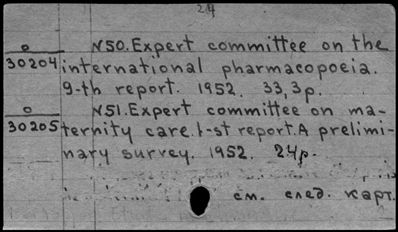 24
0 N50. Expert committee on the
30204 international pharmacopoeia.
9-th report. 1952. 33,3p.
0 N51. Expert committee on ma-
30205 ternity care. 1-st report. A prelimi-
nary survey. 1952. 24p.
см. след. карт.